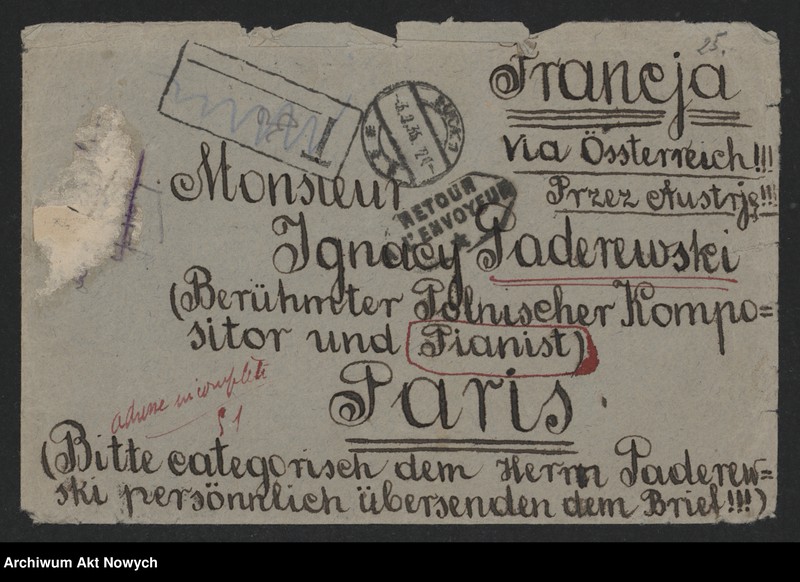 25.
Francja
Via Össterreich!!!
Przez Austrję!!!
Monsieur
RETOUR
A L'ENVOYEUR
Ignacy Paderewski
(Berühmter Polnischer Kompo=
sitor und (Pianist)
adresse incomplète
Paris.
(Bitte categorisch dem Herrn Paderew=
ski persönnlich übersenden dem Brief!!!)
Archiwum Akt Nowych